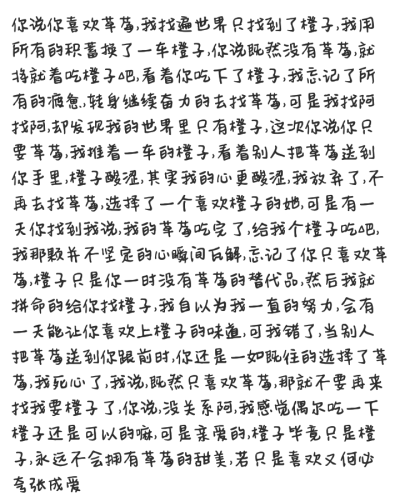 你说你喜欢草莓,我找遍世界只找到了橙子,我用
所有的积蓄换了一车橙子,你说既然没有草莓,就
将就着吃橙子吧,看着你吃下了橙子,我忘记了所
有的疲惫,转身继续奋力的去找草莓,可是我找阿
找阿,却发现我的世界里只有橙子,这次你说你只
要草莓,我推着一车的橙子,看着别人把草莓送到
你手里,橙子酸涩,其实我的心更酸涩,我放弃了,不
再去找草莓,选择了一个喜欢橙子的她,可是有一
天你找到我说,我的草莓吃完了,给我个橙子吃吧,
我那颗并不坚定的心瞬间瓦解,忘记了你只喜欢草
莓,橙子只是你一时没有草莓的替代品,然后我就
拼命的给你找橙子,我自以为我一直的努力,会有
一天能让你喜欢上橙子的味道,可我错了,当别人
把草莓送到你跟前时,你还是一如既往的选择了草
莓,我死心了,我说,既然只喜欢草莓,那就不要再来
找我要橙子了,你说,没关系阿,我感觉偶尔吃一下
橙子还是可以的嘛,可是亲爱的,橙子毕竟只是橙
子,永远不会拥有草莓的甜美,若只是喜欢又何必
夸张成爱